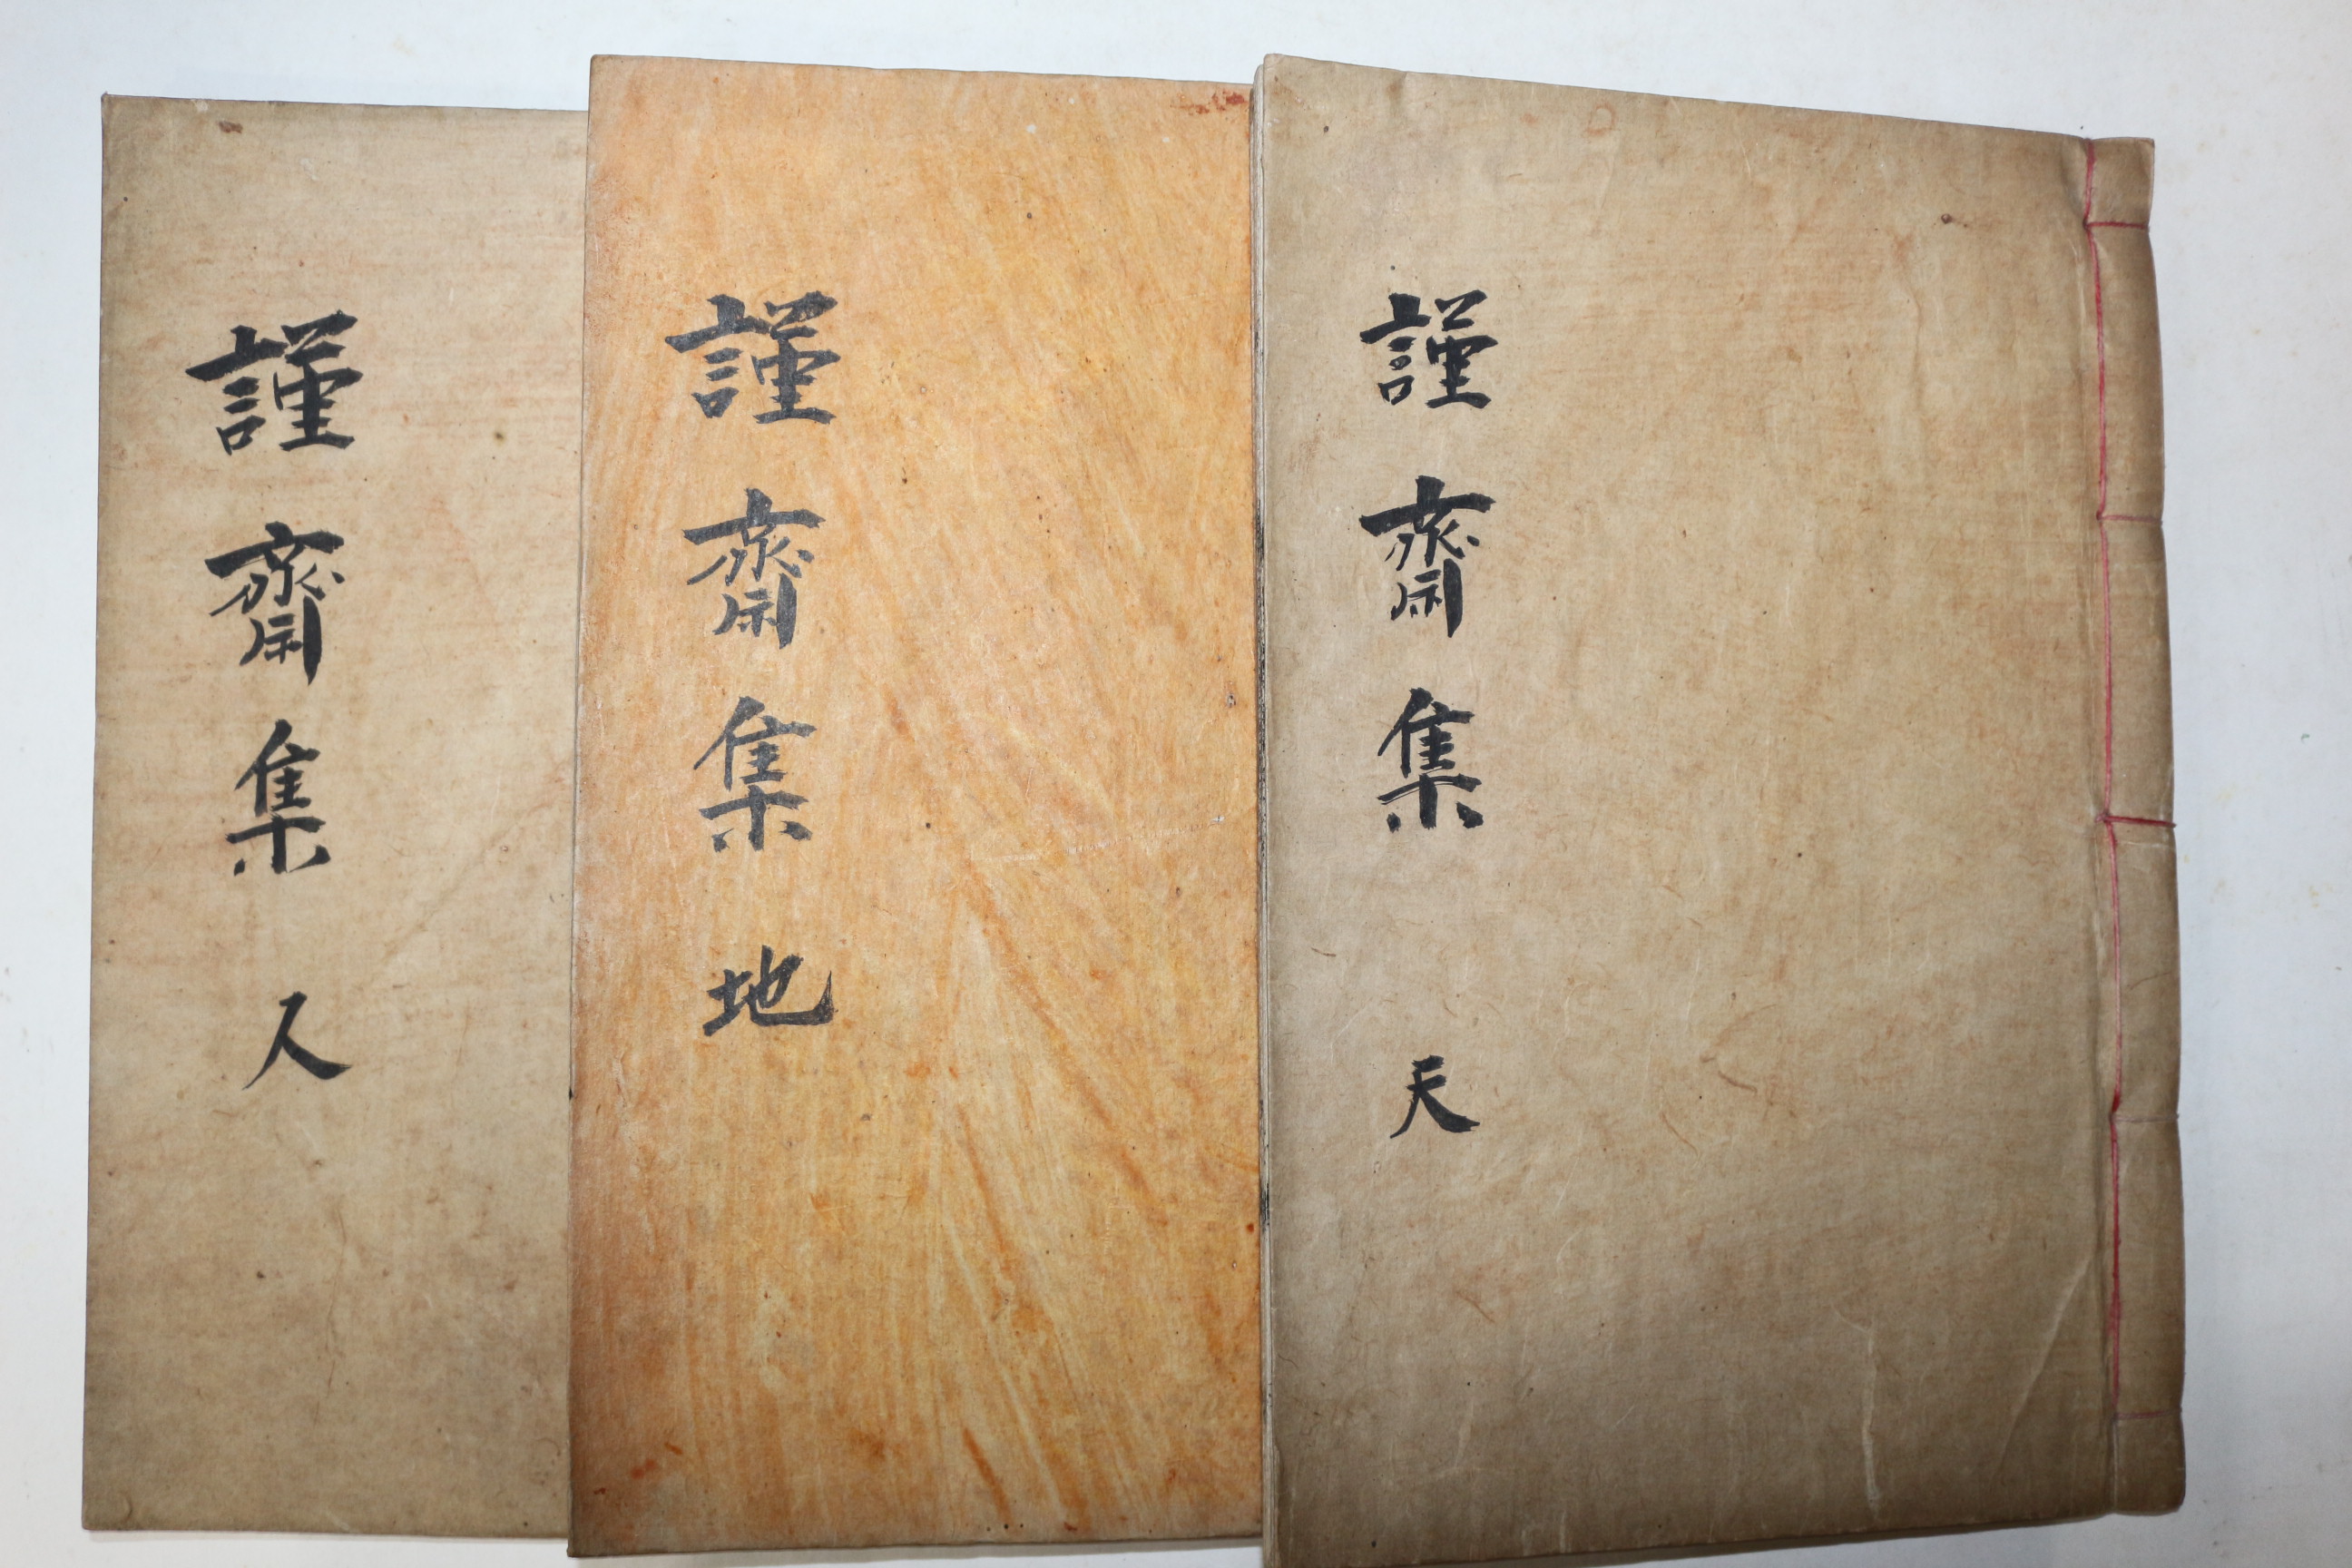 謹齋集 天
謹齋集 地
謹齋集 人